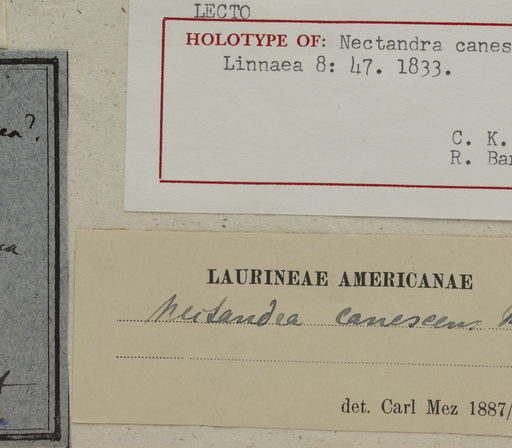 LECTO
HOLOTYPE OF: Nectandra canes
Linnaea 8: 47. 1833.
C. K.
R. Bar
LAURINEAE AMERICANAE
Nectandra canescens
det. Carl Mez 1887/